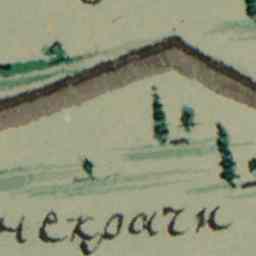 некрачи